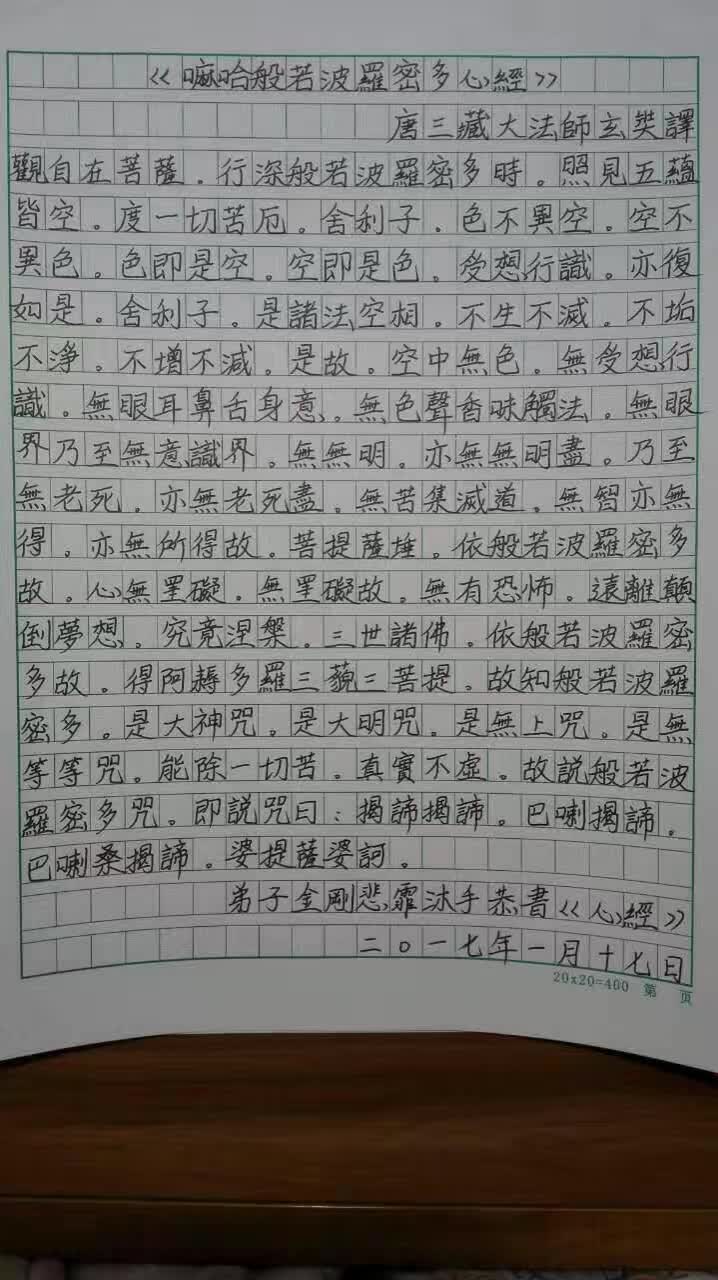 《嘛哈般若波羅密多心經》
唐三藏大法師玄奘譯
觀自在菩薩。行深般若波羅密多時。照見五蘊
皆空。度一切苦厄。舍利子。色不異空。空不
異色。色即是空。空即是色。受想行識。亦復
如是。舍利子。是諸法空相。不生不滅。不垢
不淨。不增不減。是故。空中無色。無受想行
識。無眼耳鼻舌身意。無色聲香味觸法。無眼
界乃至無意識界。無無明。亦無無明盡。乃至
無老死。亦無老死盡。無苦集滅道。無智亦無
得。亦無所得故。菩提薩埵。依般若波羅密多
故。心無罣礙。無罣礙故。無有恐怖。遠離顛
倒夢想。究竟涅槃。三世諸佛。依般若波羅密
多故。得阿耨多羅三藐三菩提。故知般若波羅
密多。是大神咒。是大明咒。是無上咒。是無
等等咒。能除一切苦。真實不虛。故説般若波
羅密多咒。即説咒曰：揭諦揭諦。巴喇揭諦。
巴喇桑揭諦。婆提薩婆訶。
弟子金剛悲霏沐手恭書《心經》
二〇一七年一月十七日
20x20=400 第 頁